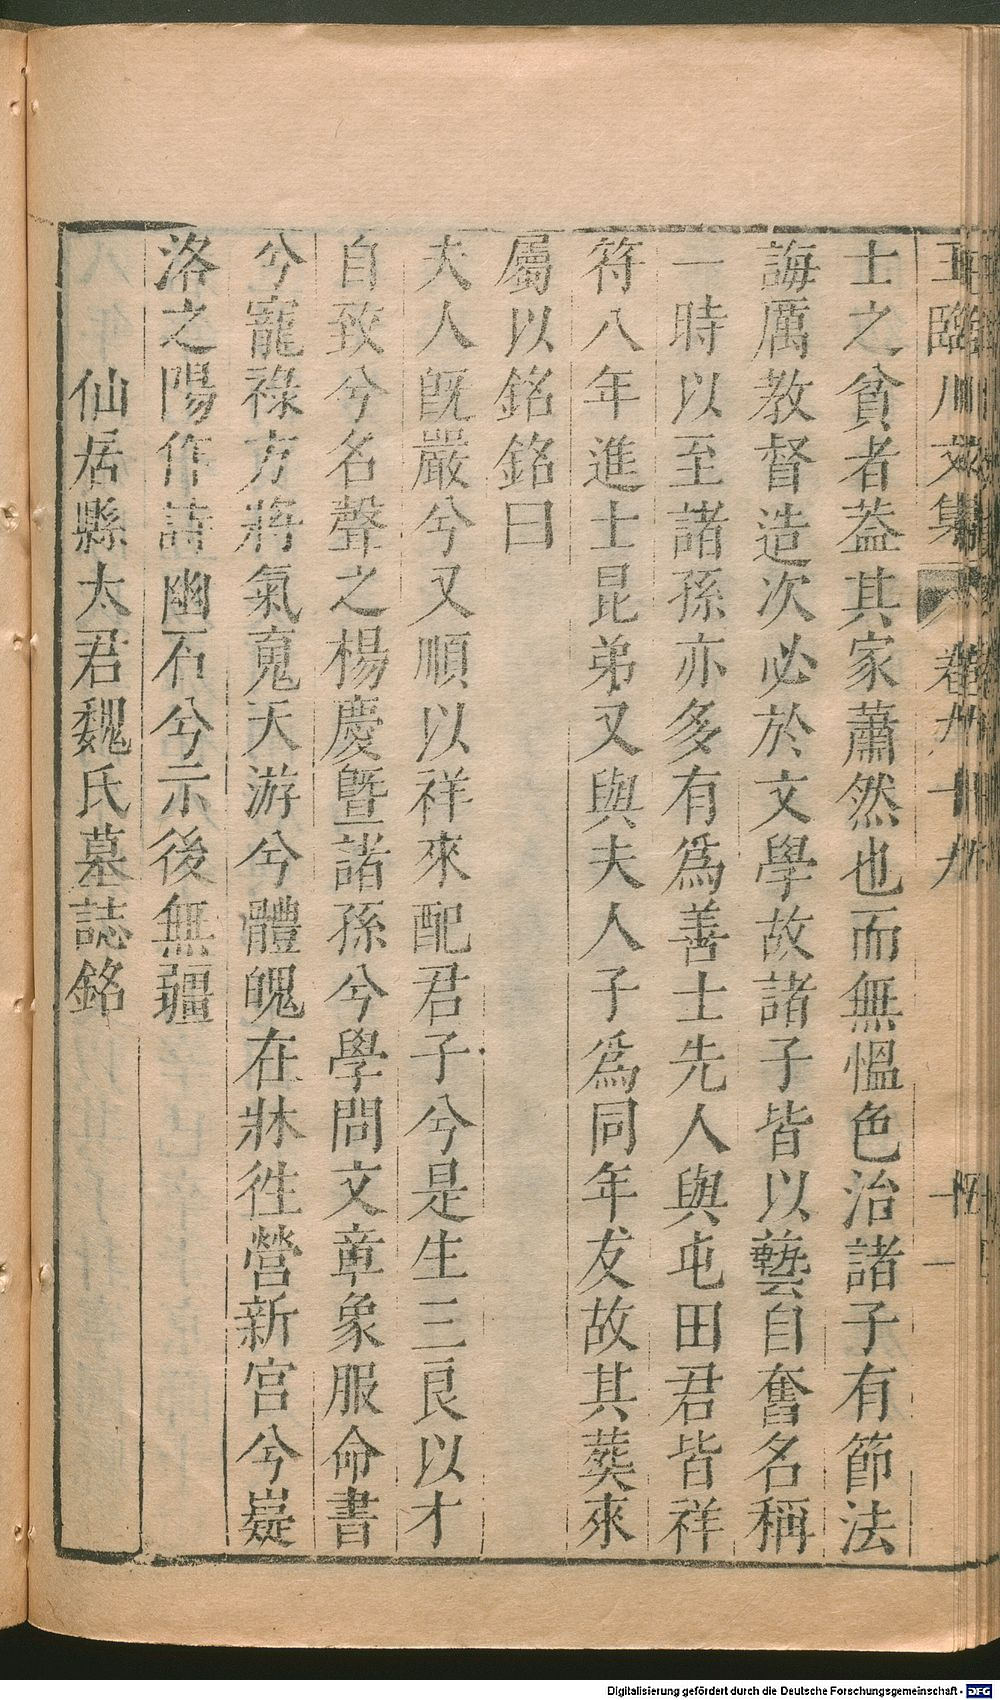 王臨川文集 卷九十九 十一
士之貧者葢其家蕭然也而無慍色治諸子有節法
誨厲教督造次必於文學故諸子皆以藝自奮名稱
一時以至諸孫亦多有爲善士先人與屯田君皆祥
符八年進士昆弟又與夫人子爲同年友故其葬來
屬以銘銘曰
夫人旣嚴兮又順以祥來配君子兮是生三良以才
自致兮名聲之楊慶曁諸孫兮學問文章象服命書
兮寵祿方將氣䰟天游兮體魄在牀徃營新宮兮嶷
洛之陽作詩幽石兮示後無疆
仙居縣太君魏氏墓誌銘
Digitalisierung gefördert durch die Deutsche Forschungsgemeinschaft - DFG